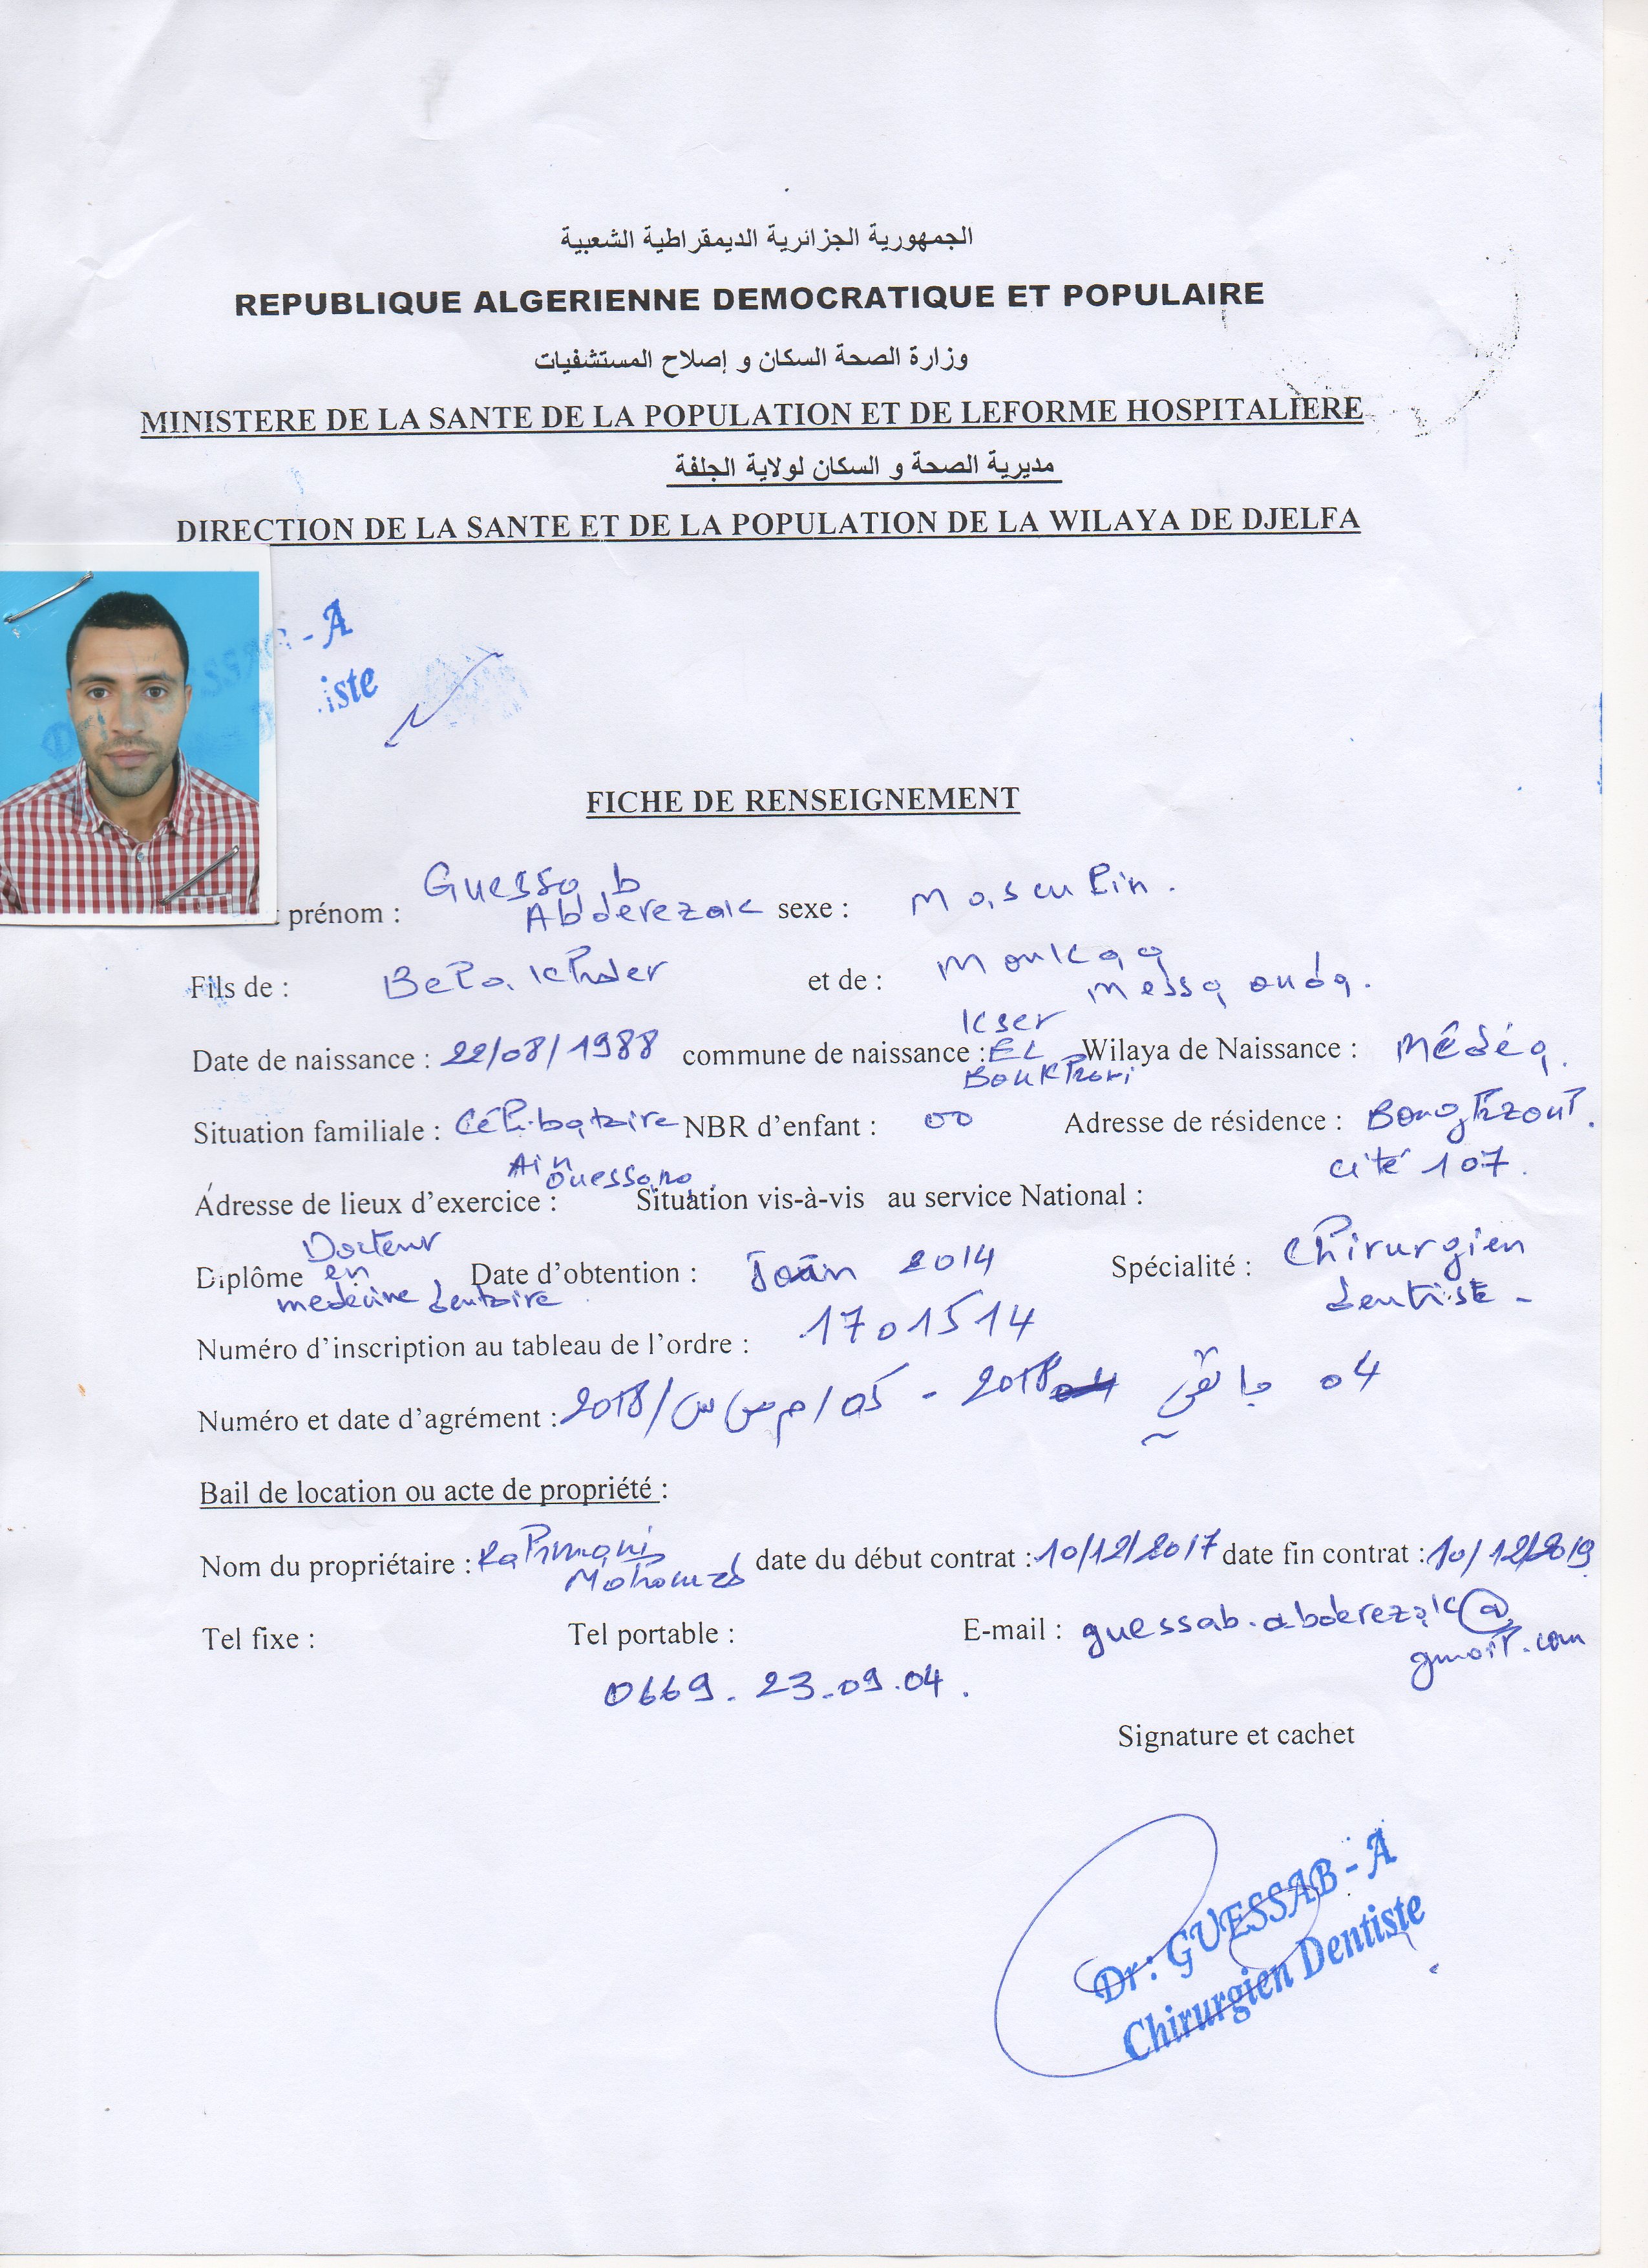 الجمهورية الجزائرية الديمقراطية الشعبية
REPUBLIQUE ALGERIENNE DEMOCRATIQUE ET POPULAIRE
وزارة الصحة السكان و إصلاح المستشفيات
MINISTERE DE LA SANTE DE LA POPULATION ET DE LEFORME HOSPITALIERE
مديرية الصحة و السكان لولاية الجلفة
DIRECTION DE LA SANTE ET DE LA POPULATION DE LA WILAYA DE DJELFA
- A
iste
FICHE DE RENSEIGNEMENT
prénom : Guessab Abderezak sexe : Masculin.
Fils de : Belakhder et de : Moukaq Messaouda.
Date de naissance : 22/08/1988 commune de naissance : Kser EL Boukhari Wilaya de Naissance : Médéa.
Situation familiale : Célibataire NBR d'enfant : 00 Adresse de résidence : Boughzoul. cité 107.
Adresse de lieux d'exercice : Ain Ouessara. Situation vis-à-vis au service National :
Diplôme Docteur en medecine dentaire Date d'obtention : Juin 2014 Spécialité : Chirurgien dentiste -
Numéro d'inscription au tableau de l'ordre : 1701514
Numéro et date d'agrément : 2018/م ص س/05 - 2018 جانفي 04
Bail de location ou acte de propriété :
Nom du propriétaire : Rahmani Mohamed date du début contrat : 10/12/2017 date fin contrat : 10/12/2019
Tel fixe : Tel portable : E-mail : guessab.abderezak@gmail.com
0669. 23.09.04.
Signature et cachet
Dr : GUESSAB - A
Chirurgien Dentiste